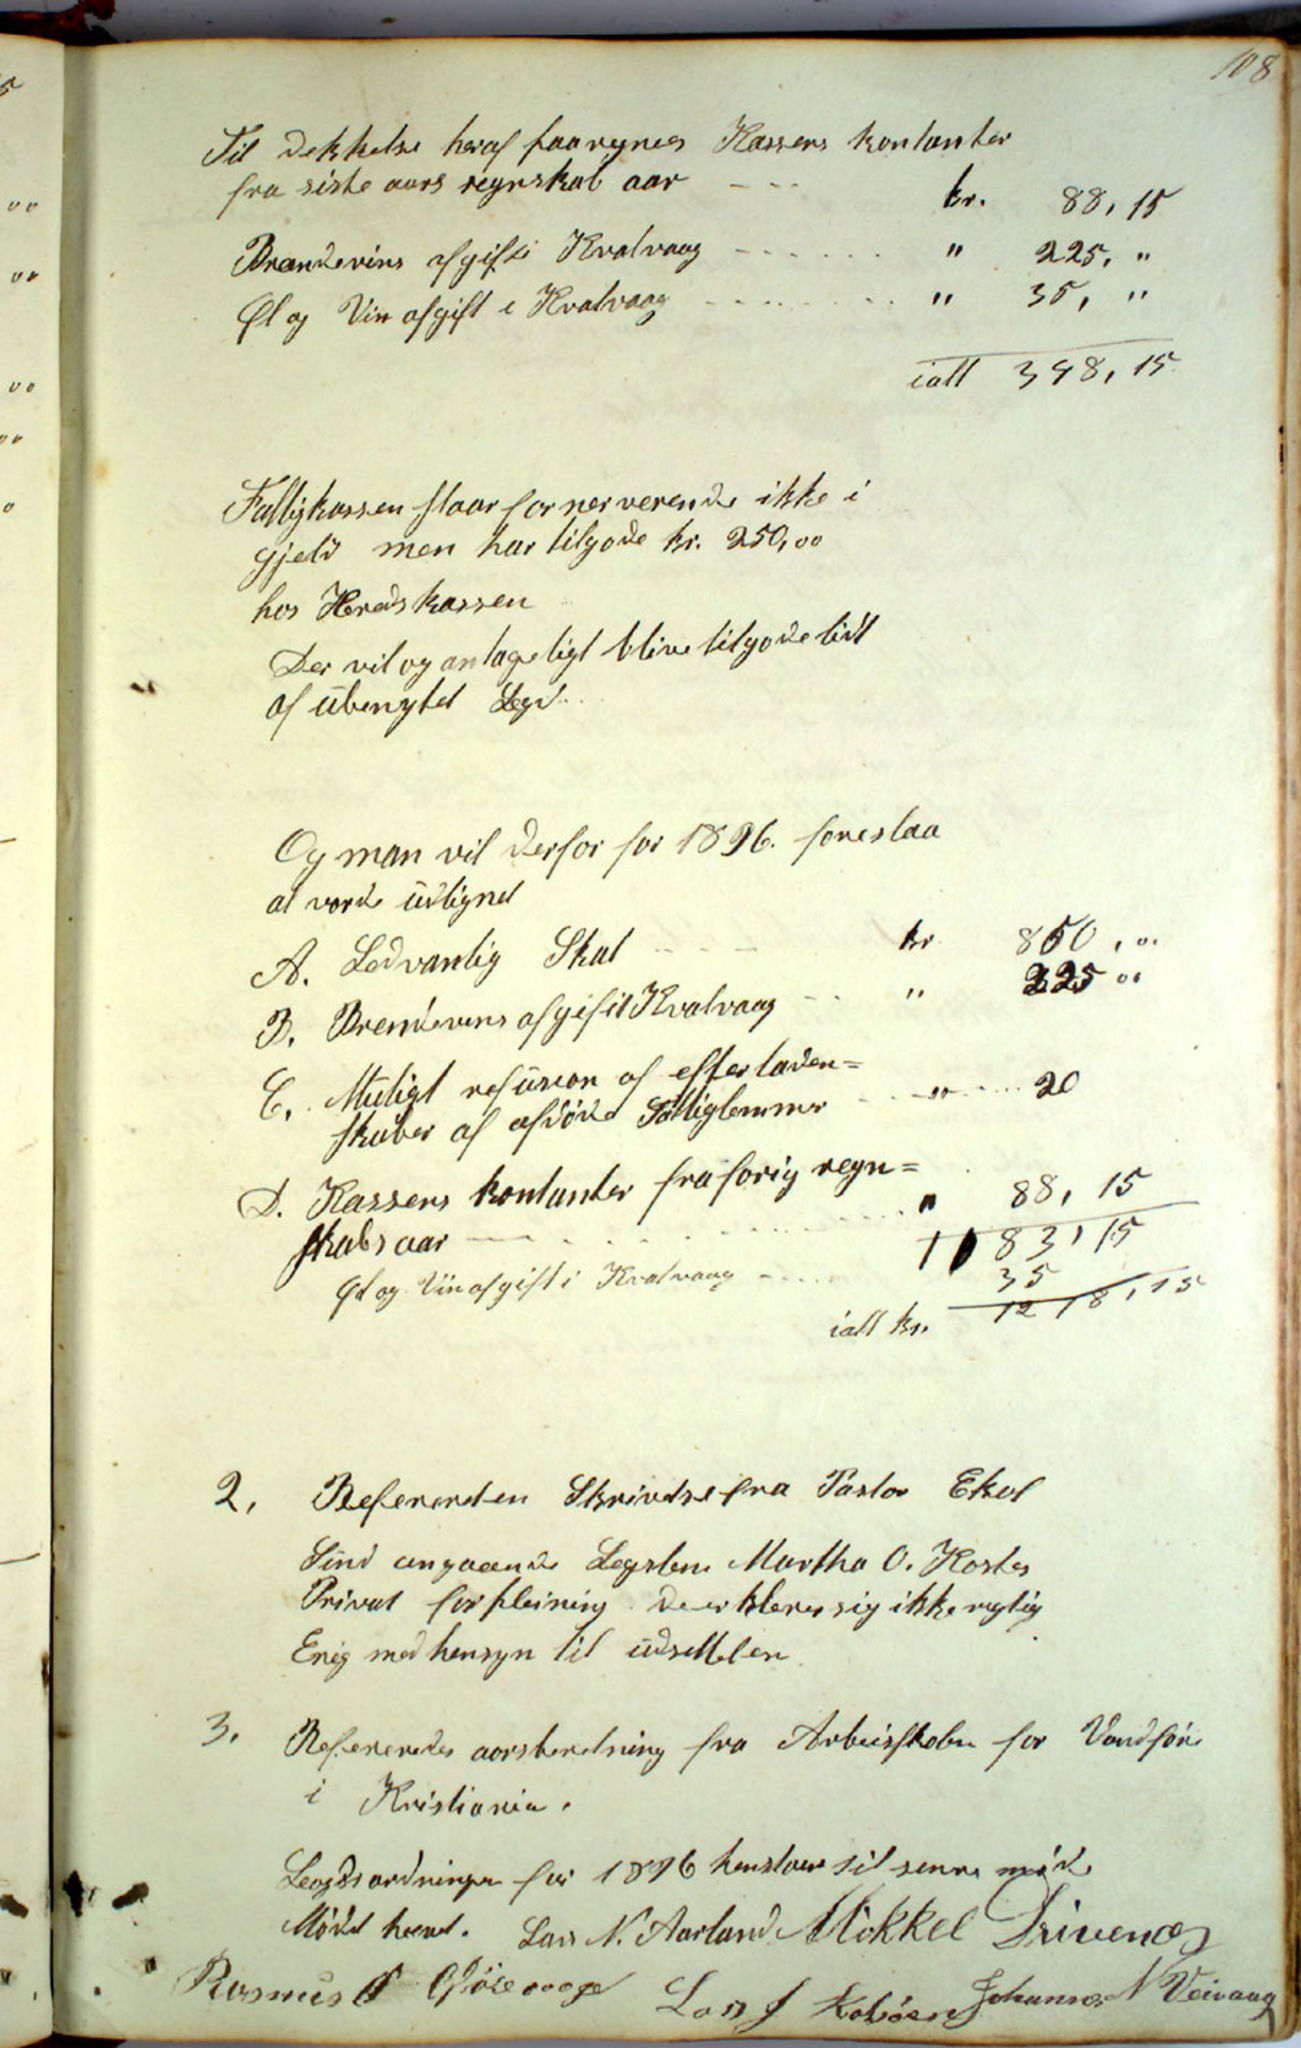 108
Til Dekkelse heraf paaregnes Kassens kontanter
fra siste aars regnskab aar - - - kr. 88, 15
Brændevins afgift i Kvalvaag - - - - - - " 225, "
Øl og Vin afgift i Kvalvaag - - - - - - - " 35, "
ialt 348, 15
Fattigkassen staar for nerverende ikke i
gjeld men har tilgode kr. 250,00
hos Heredskassen
Der vil og antageligt blive tilgode lidt
af übenytet Legd.
Og man vil derfor for 1896. foreslaa
at vorde üdlignet
A. Sedvanlig Skat - - - - kr 850, 00
B. Brendevins afgift i Kvalvaag - - " 225 00
C. Muligt refüsion af efterladen=
skaber af afdöde Fattiglemmer - - - " - - - 20
D. Kassens kontanter fra forig regn=
skabs aar - - - - - - - - " 88, 15
1183, 15
Øl og Vin afgift i Kvalvaag - - - - 35
ialt kr. 1218, 15
2. Refererden Skrivelse fra Pastor
Sund angaaende Legslem Martha O.
Privat forpleining de erklerer sig ikke rigtig
Enig med hensyn til
3. Refereredes aarsberetning fra Arbeisskolen for Vandföre
i Kristiania.
Legdsordningen for 1896 henstaar til senere möde
Mödet hevet. Lars N. Aarland Mikkel Drivenes
Rasmus Lars J Johannes N Veivaag